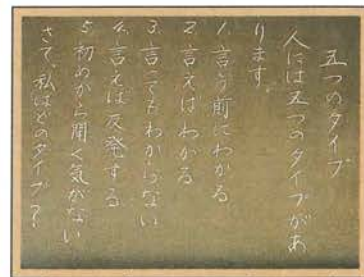 五つのタイプ
人には五つのタイプがあ
ります。
1. 言う前にわかる
2. 言えばわかる
3. 言ってもわからない
4. 言えば反発する
5. 初めから聞く気がない
さて、私はどのタイプ?